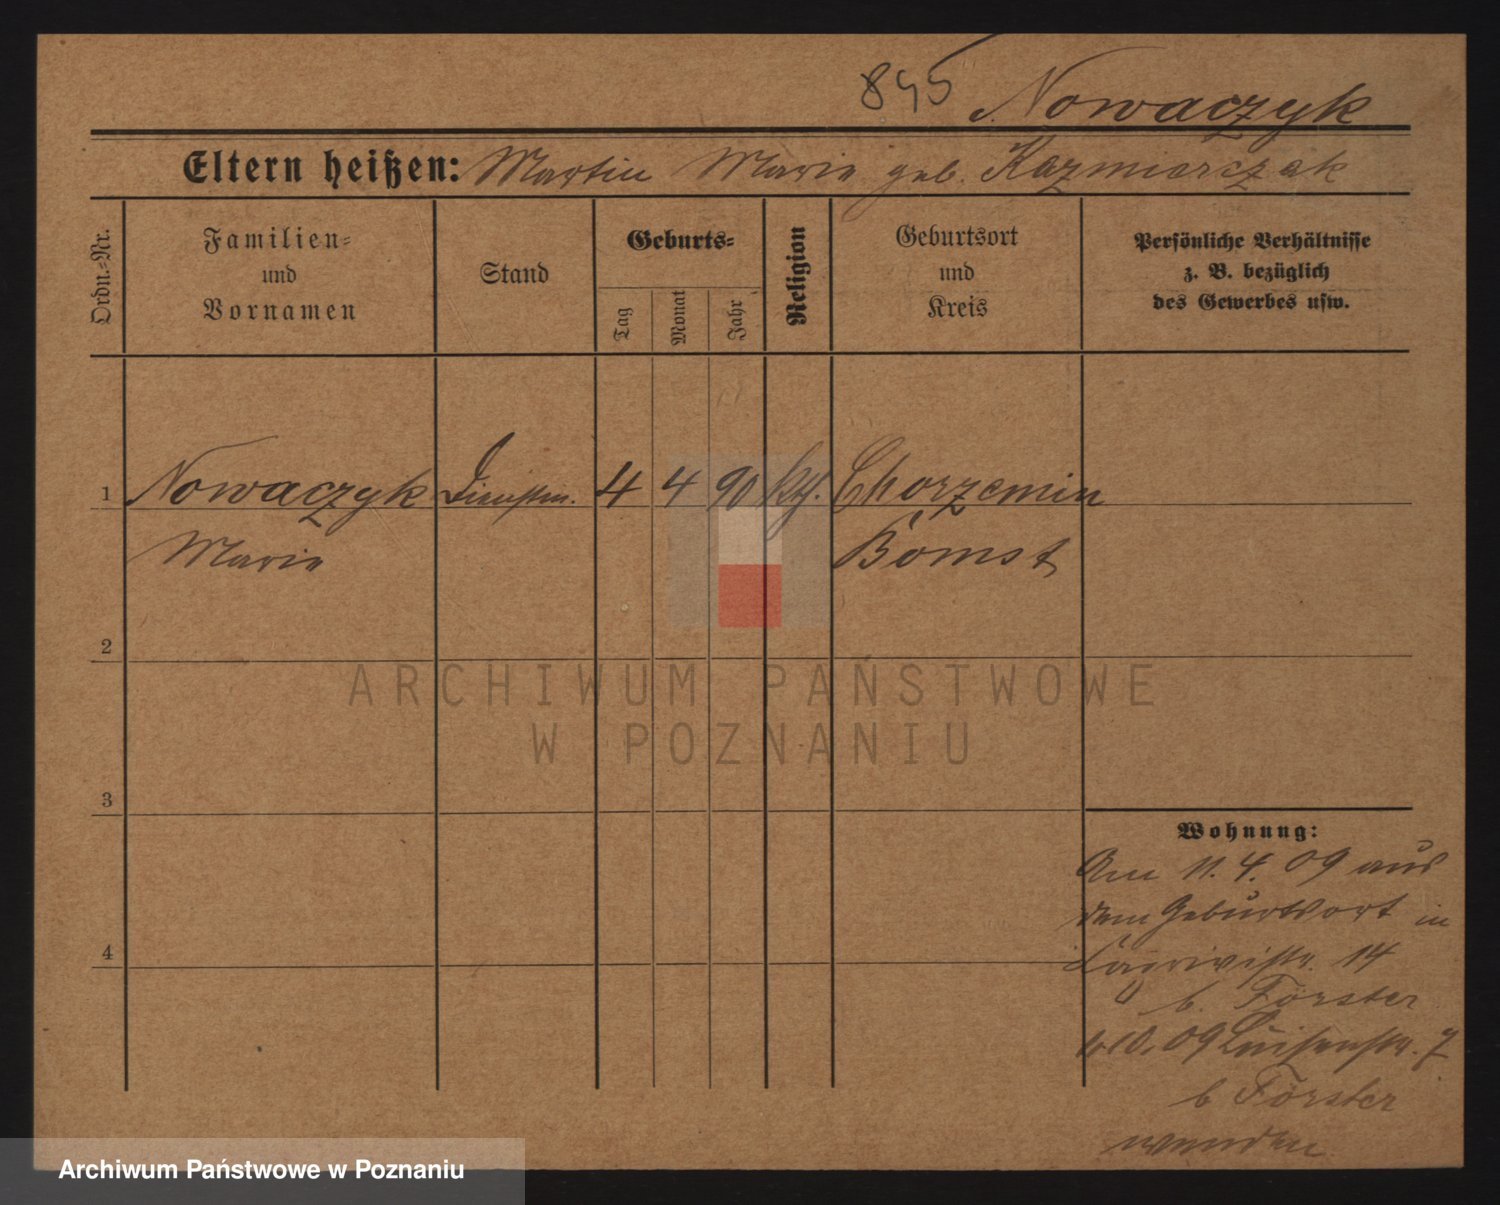 845 Nowaczyk
Eltern heißen: Martin Marie geb. Kazmierczak
Ordn.=Nr.
Familien=
und
Vornamen
Stand
Geburts=
Tag
Monat
Jahr
Religion
Geburtsort
und
Kreis
Persönliche Verhältnisse
z. B. bezüglich
des Gewerbes usw.
1 Nowaczyk Dienstm. 4 4 90 kth. Chorzemin
Marie Bomst
2
ARCHIWUM PAŃSTWOWE
W POZNANIU
3
Wohnung:
Am 11. 4. 09 aus
dem Geburtsort in
14
4
b. Förster
10. 09 Luisenstr. 7
b Förster
wenden
Archiwum Państwowe w Poznaniu